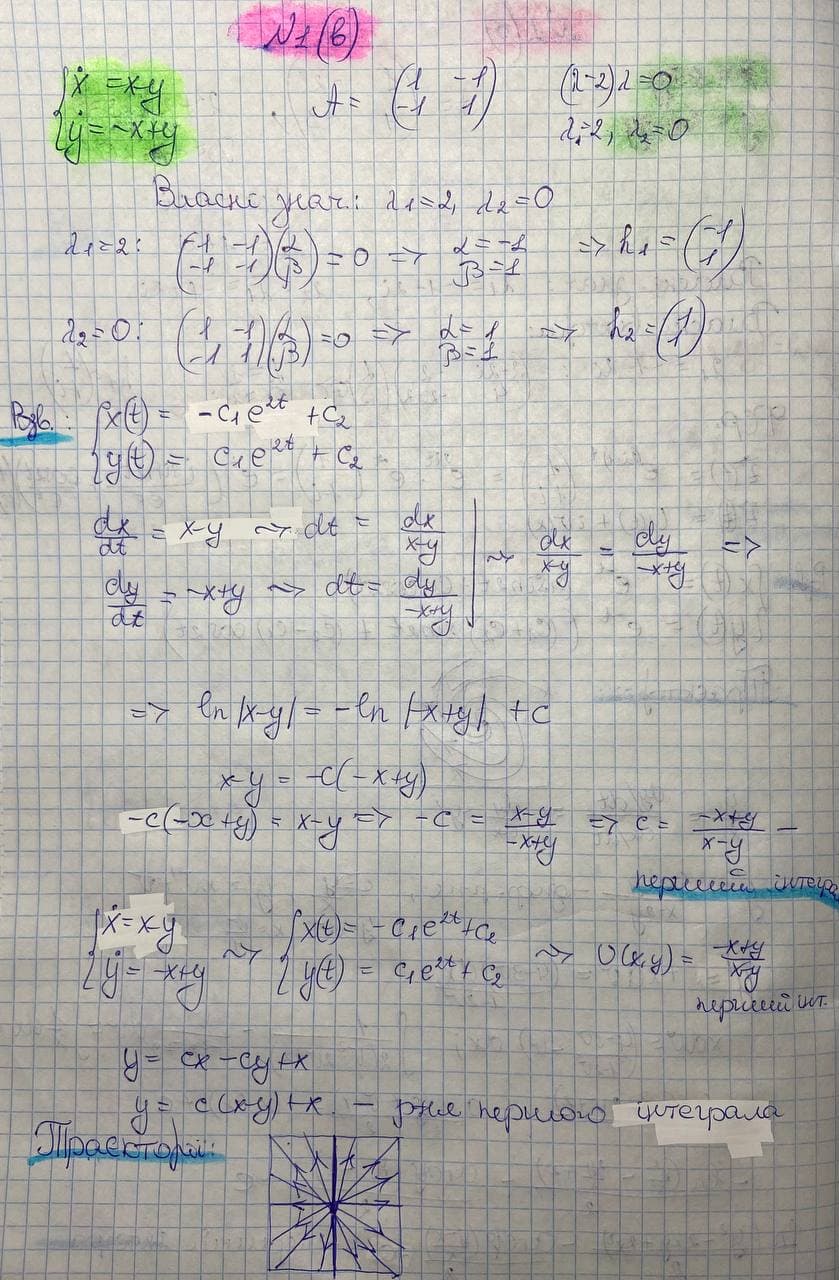 N1(в)
{ẋ = x-y
{ẏ = -x+y
A = (1 -1
-1 1)
(λ-2)λ=0
λ₁=2, λ₂=0
Власне знач.: λ₁=2, λ₂=0
λ₁=2: (-1 -1
-1 -1)(α
β) = 0 => α=-1
β=1 => h₁ = (-1
1)
λ₂=0: (1 -1
-1 1)(α
β) = 0 => α=1
β=1 => h₂ = (1
1)
Рзв.: {x(t) = -c₁e^{2t} + c₂
{y(t) = c₁e^{2t} + c₂
dx/dt = x-y ~> dt = dx/(x-y)
dy/dt = -x+y ~> dt = dy/(-x+y)
~> dx/(x-y) = dy/(-x+y) =>
=> ln|x-y| = -ln|-x+y| + c
x-y = -c(-x+y)
-c(-x+y) = x-y => -c = (x-y)/(-x+y) => c = (-x+y)/(x-y) -
перший інтеграл
{ẋ = x-y
{ẏ = -x+y ~> {x(t) = -c₁e^{2t}+c₂
{y(t) = c₁e^{2t}+c₂ ~> U(x,y) = (-x+y)/(x-y)
перший інт.
y = cx - cy + x
y = c(x-y)+x - р-ня першого інтеграла
Траєкторії: